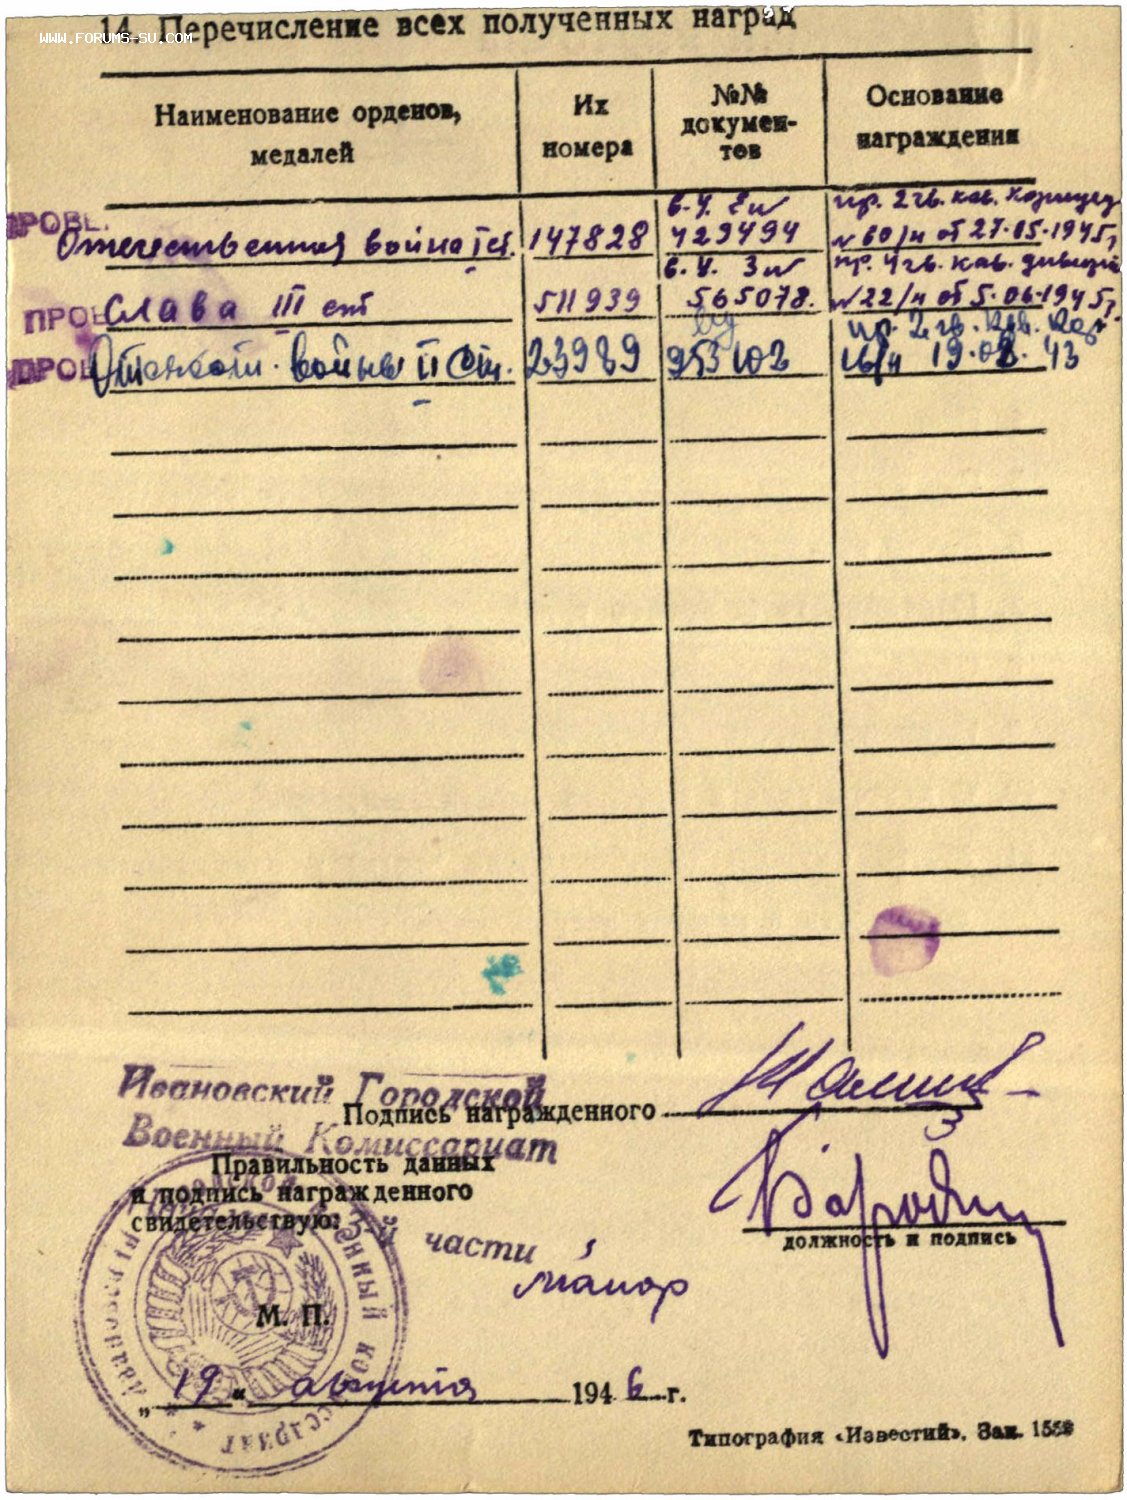 14. Перечисление всех полученных наград
www.forums-su.com
Наименование орденов, медалей
Их номера
№№ документов
Основание награждения
в.у. 2 и пр. 2 гв. кав.
Отечественная война I ст. 147828 429494 № 60/н от 27.05.1945 г.
в.у. 3 и пр. 4 гв. кав. дивизии
Слава III ст 511939 565078. № 22/н от 5.06.1945 г.
пр. 2 гв. кав. кор.
войны II ст. 23989 953102 16/н 19.08.43
Ивановский Городской
Подпись награжденного
Военный Комиссариат
Правильность данных
и подпись награжденного
свидетельствую:
3-й части
майор
должность и подпись
М. П.
„19“ августа 1946 г.
Типография «Известий». Зак.